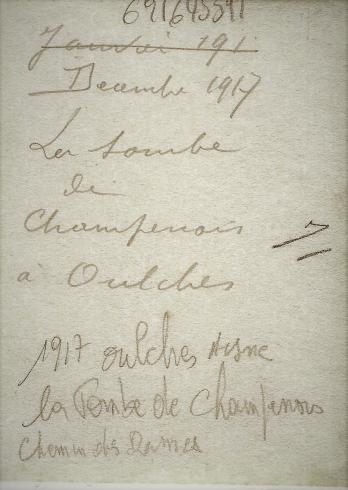 691645591
Janvier 191
Decembre 1917
La tombe
de
Champenois
à Oulches
1917 oulches Aisne
la Tombe de Champenois
Chemin des Dames